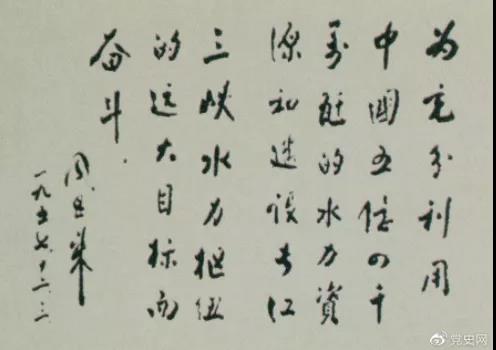 为充分利用
中國五億四千
萬瓩的水力資
源和建設长江
三峡水力枢纽
的远大目标而
奋斗.
周恩来
一九五七.十二.三
党史网